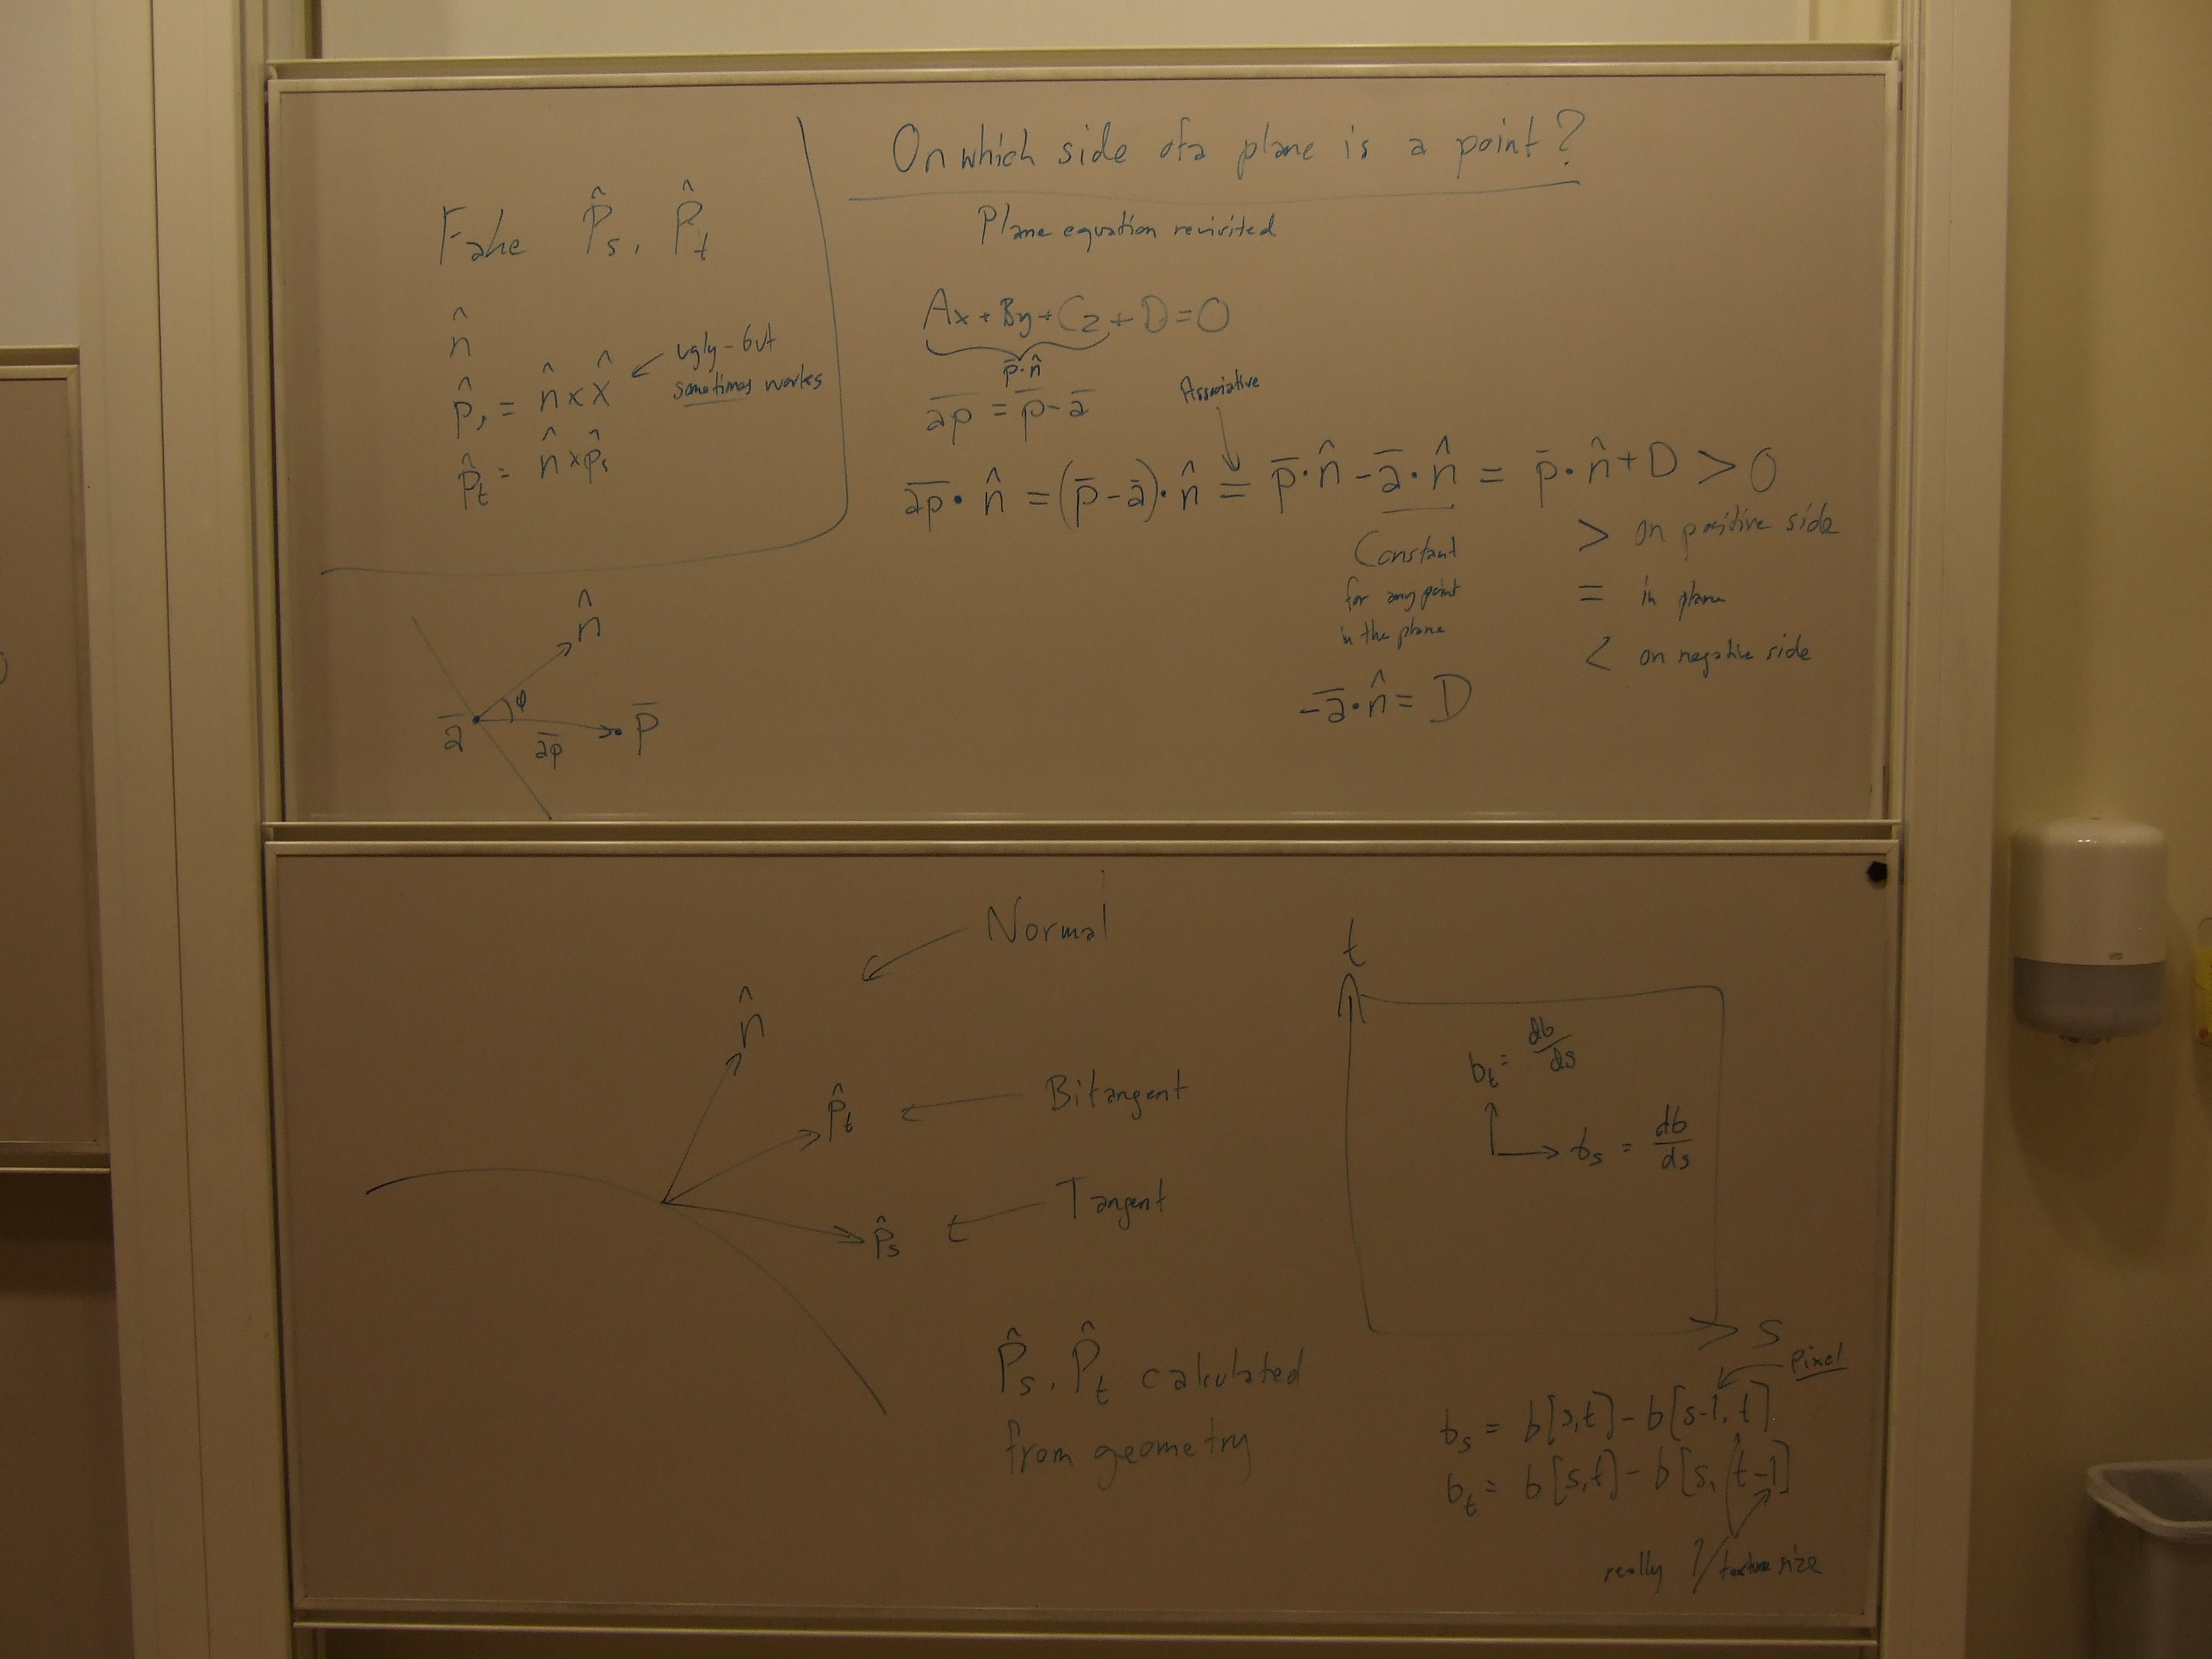 Fake P̂s, P̂t
n̂
p̂s = n̂ × x̂
ugly - but
sometimes works
p̂t = n̂ × p̂s
n̂
φ
a̅
a̅p̅
p̅
On which side of a plane is a point?
Plane equation revisited
Ax + By + Cz + D = 0
p̅·n̂
a̅p̅ = p̅ - a̅
Associative
a̅p̅ · n̂ = (p̅ - a̅) · n̂ = p̅ · n̂ - a̅ · n̂ = p̅ · n̂ + D > 0
Constant
for any point
in the plane
-a̅ · n̂ = D
> on positive side
= in plane
< on negative side
Normal
n̂
p̂t
Bitangent
p̂s
Tangent
P̂s, P̂t calculated
from geometry
t
bt = db/ds
bs = db/ds
s
Pixel
bs = b[s,t] - b[s-1, t]
bt = b[s,t] - b[s, t-1]
really 1/texture size